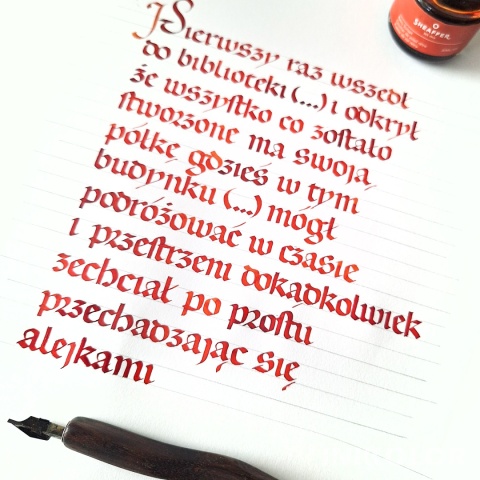 SHEAFFER
Pierwszy raz wszedł
do biblioteki (...) i odkrył
że wszystko co zostało
stworzone ma swoją
półkę gdzieś w tym
budynku (...) mógł
podróżować w czasie
i przestrzeni dokądkolwiek
zechciał po prostu
przechadzając się
alejkami